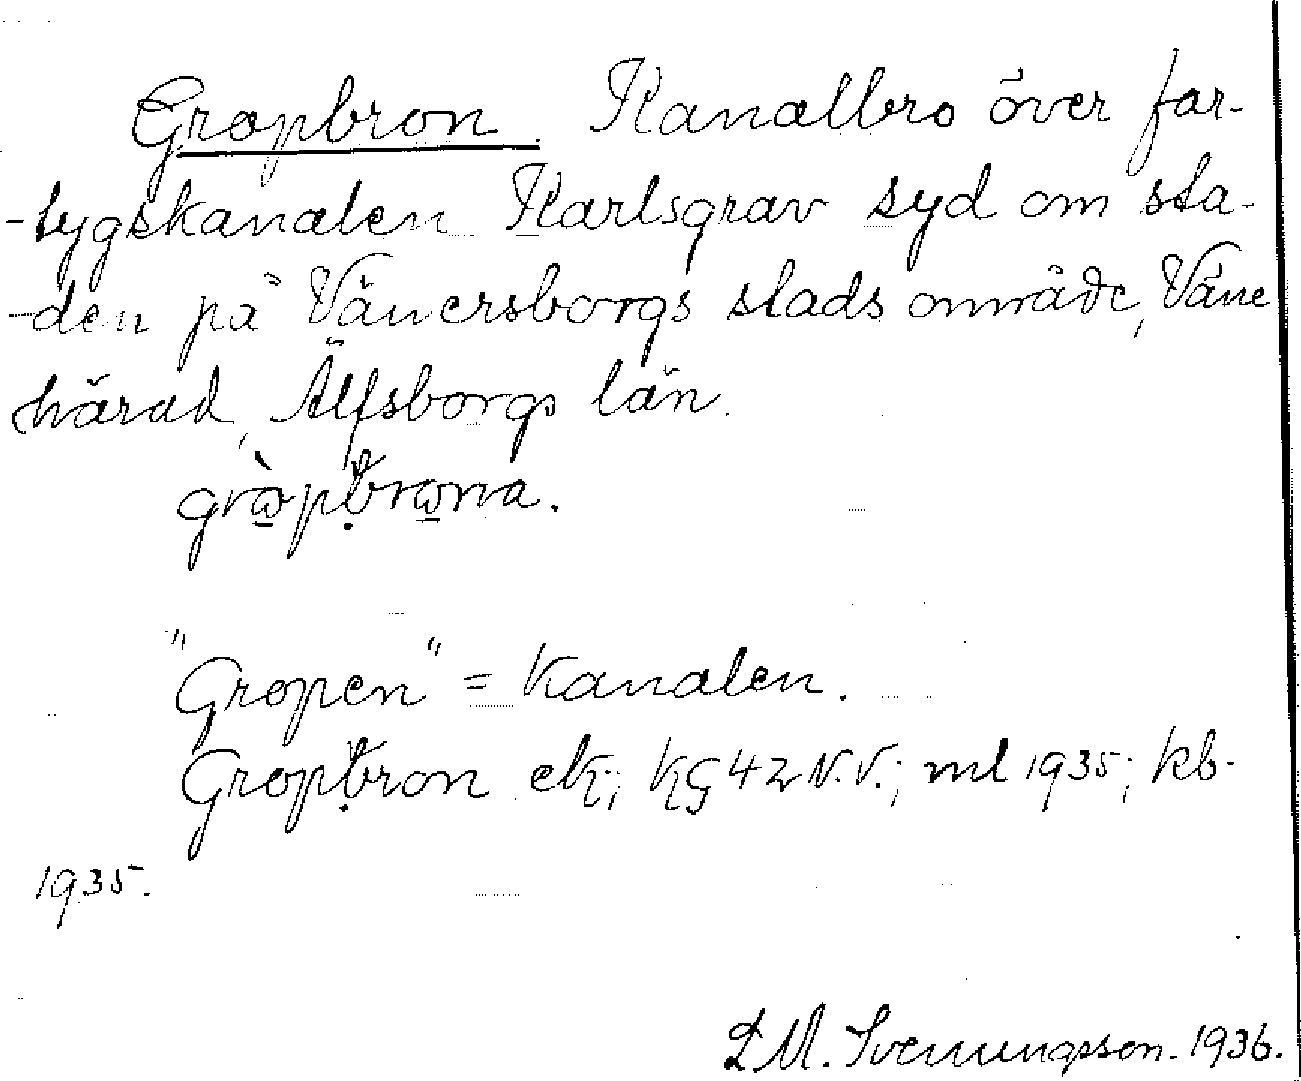 Gropbron. Kanalbro över far-
-tygskanalen Karlsgrav syd om sta-
-den på Vänersborgs stads område, Väne
härad, Älfsborgs län.
grὼpbrωna.
"Gropen" = Kanalen.
Gropbron ek; KG 42 N.V.; ml 1935; kb.
1935.
L M. Svenungsson. 1936.